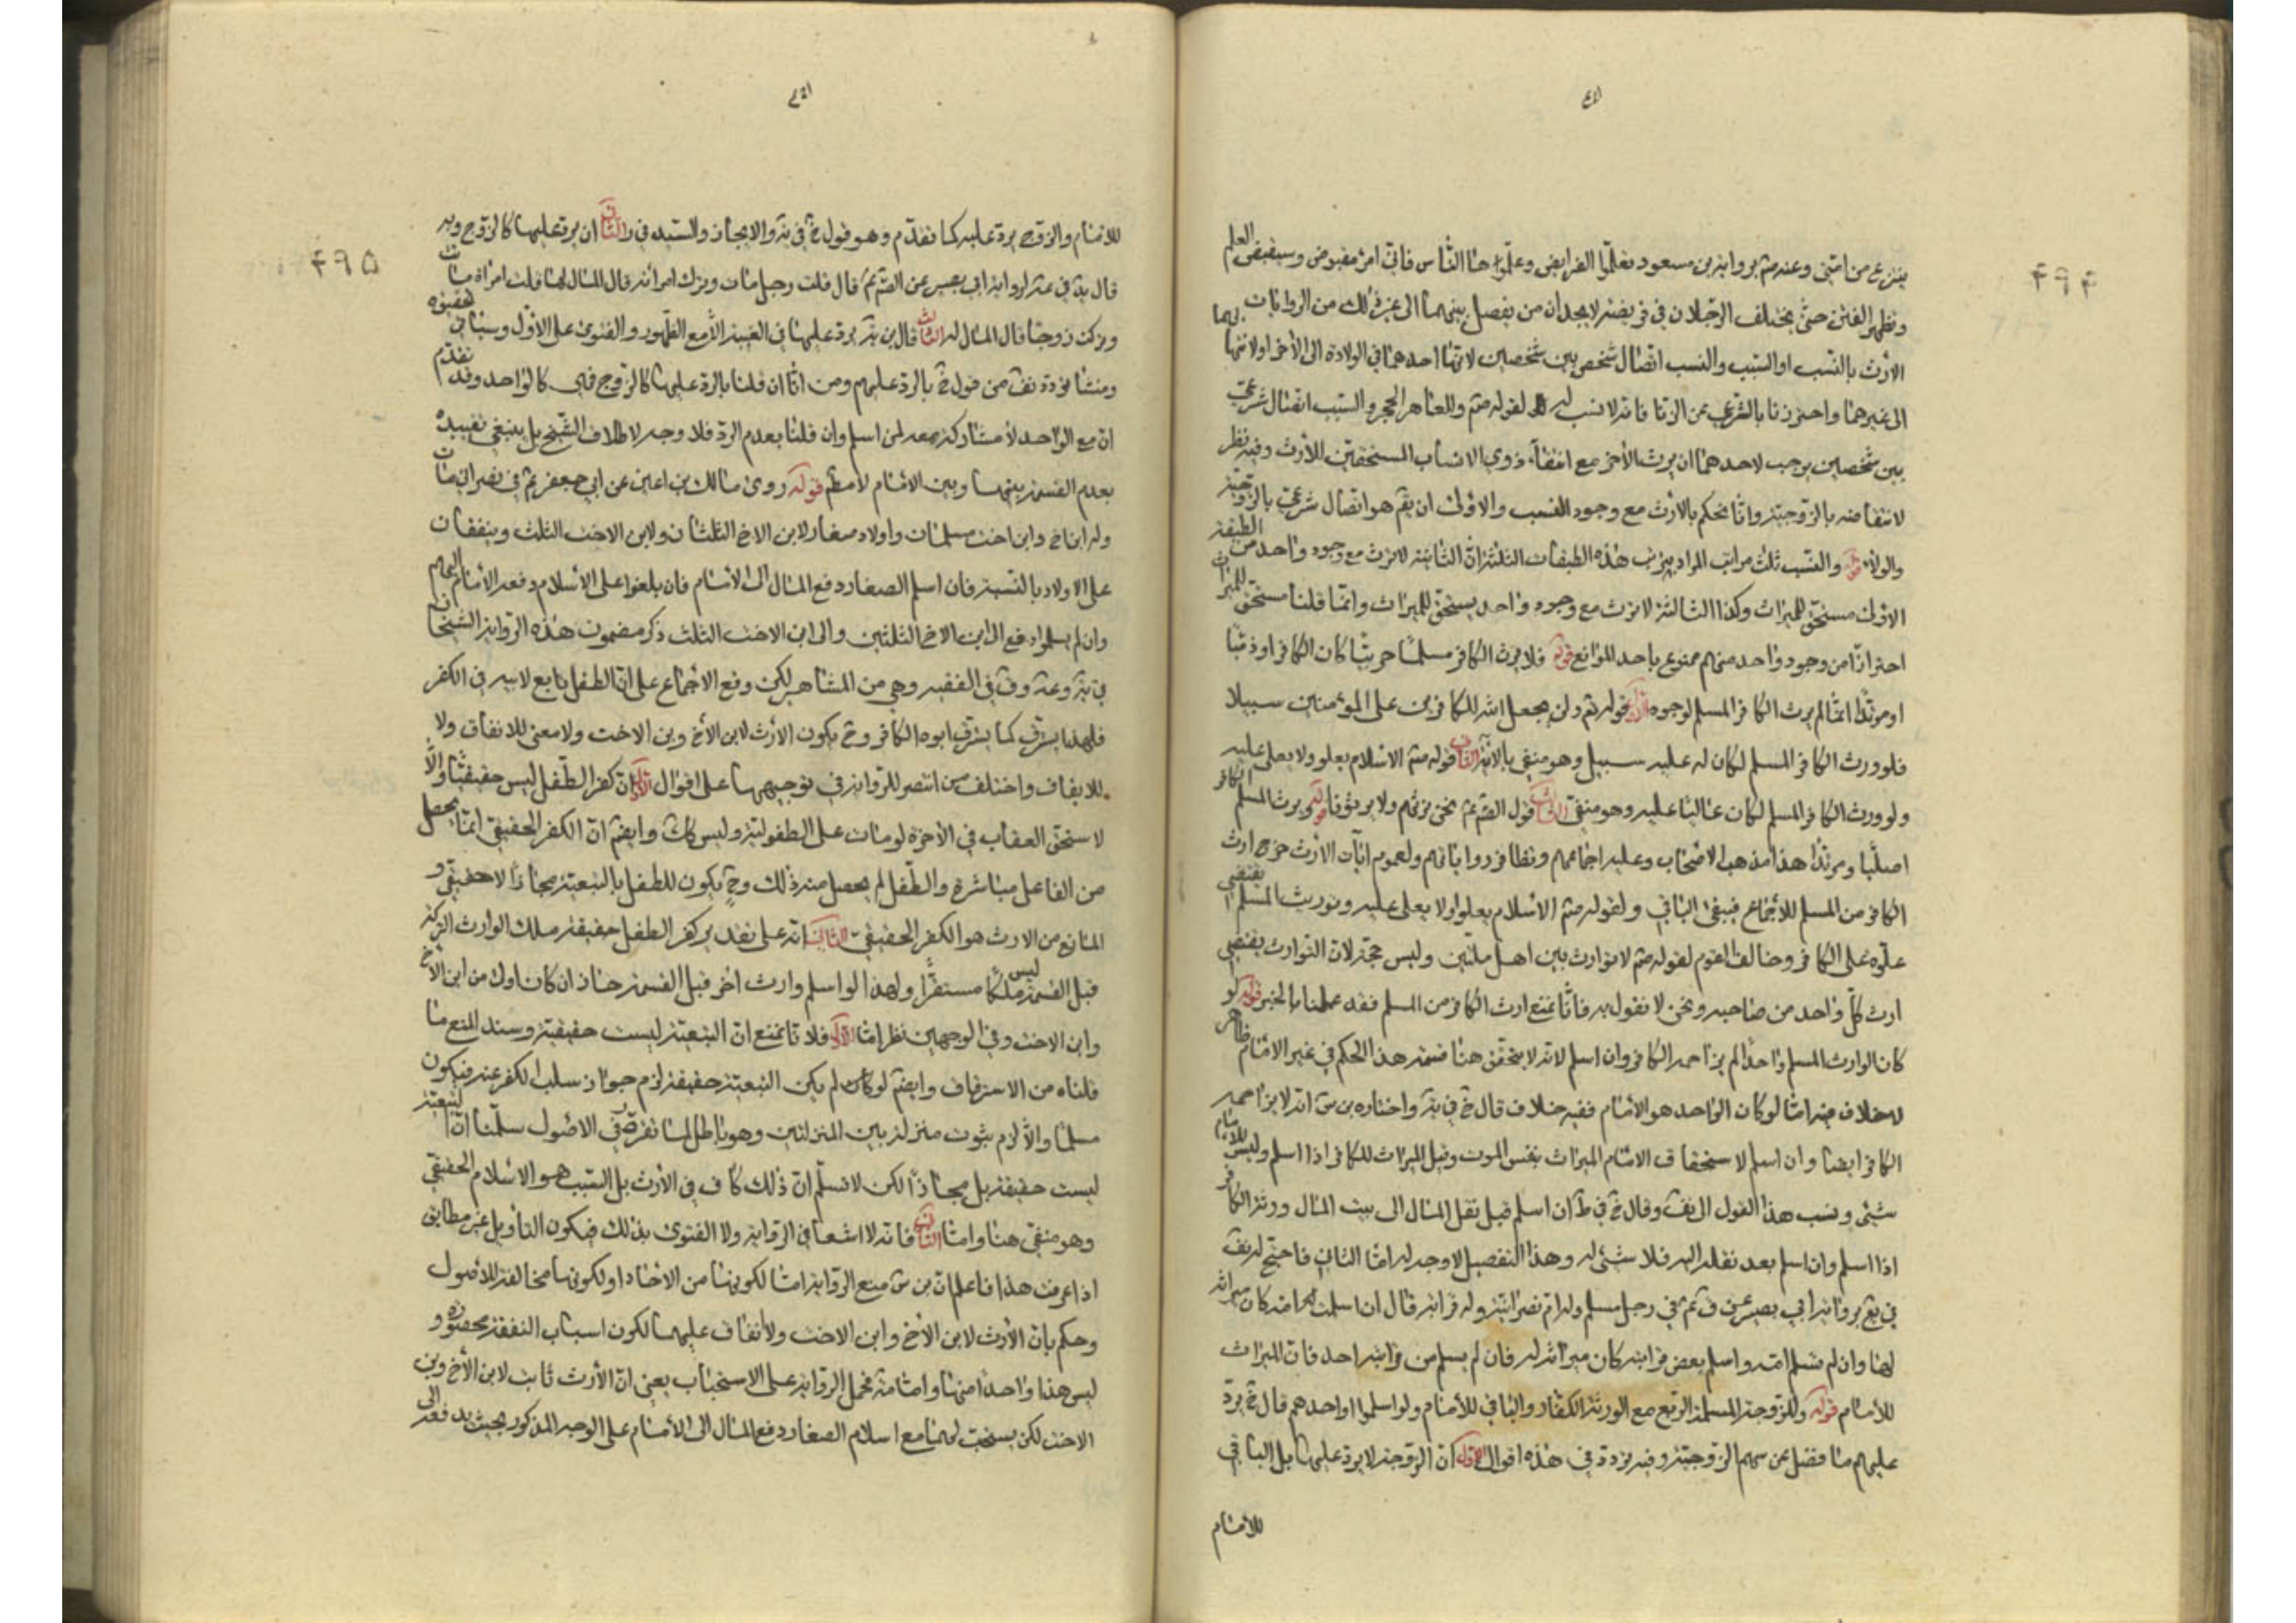 ينزع من امتى وعنه صم برواية بن مسعود تعلموا الفرايض وعلموها الناس فانى امرؤ مقبوض وسيقبض العلم
وتظهر الفتن حتى يختلف الرجلان فى فريضة لا يجدان من يفصل بينهما الى غير ذلك من الروايات
الأرث بالنسب او السبب والنسب اتصال شخص بين شخصين لانتهاء احدهما فى الولادة الى الأخر او لانتهائهما
الى غيرهما واحترزنا بالشرعى عن الزنا فانه لا نسب له لقوله صم وللعاهر الحجر والسبب اتصال شرعى
بين شخصين يوجب لاحدهما ان يرث الأخر مع انتفاء ذوى الانساب المستحقين للأرث وفيه نظر
لانتقاضه بالزوجية وانا نحكم بالأرث مع وجود النسب والاولى ان يقم هو اتصال شرعى بالزوجية
والولاء قوله والنسب ثلث مراتب المراد بترتيب هذه الطبقات الثلثة ان الثانية لا ترث مع وجود واحد من الطبقة
الاولى مستحق للميراث وكذا الثالثة لا ترث مع وجود واحد يستحق للميراث وانما قلنا مستحق للميراث
احترازا من وجود واحد منهم ممنوع باحد الموانع قوله فلا يرث الكافر مسلما حربيا كان الكافر او ذميا
او مرتدا انما لم يرث الكافر المسلم لوجوه الأول قوله تم ولن يجعل الله للكافرين على المؤمنين سبيلا
فلو ورث الكافر المسلم لكان له عليه سبيل وهو منفى بالآية الثانى قوله صم الاسلام يعلو ولا يعلى عليه
ولو ورث الكافر المسلم لكان عاليا عليه وهو منفى الثالث قول الصم عم نحن نرثهم ولا يرثونا قوله ويرث المسلم الكافر
اصليا ومرتدا هذا مذهب الاصحاب وعليه اجماعهم وتظافر رواياتهم ولعموم ايات الارث خرج ارث
الكافر من المسلم للأجماع فيبقى الباقى ولقوله صم الاسلام يعلو ولا يعلى عليه وتوريث المسلم يقتضى
علوه على الكافر وخالف القوم لقوله صم لا توارث بين اهل ملتين وليس حجة لان التوارث يقتضى
ارث كل واحد من صاحبه ونحن لا نقول به فانا نمنع ارث الكافر من المسلم فقد عملنا بالخبر قوله لو
كان الوارث المسلم واحدا لم يزاحمه الكافر وان اسلم لانه لا يتحقق هنا قسمة هذا الحكم فى غير الامام ظاهر
لاخلاف فيه اما لو كان الواحد هو الأمام ففيه خلاف قال خ فى ية واختاره بن س انه لا يزاحمه
الكافر ايضا وان اسلم لاستحقاق الامام الميراث بنفس الموت وقيل الميراث للكافر اذا اسلم وليس للامام
شئ ونسب هذا القول الى يف وقال خ فى ط ان اسلم قبل نقل المال الى بيت المال ورثه الكافر
اذا اسلم وان اسلم بعد نقله اليه فلا شئ له وهذا التفصيل لا وجه له اما الثانى فاحتج له يف
فى يع برواية ابى بصير عن ق عم فى رجل مسلم وله ام نصرانية وله قرابة قال ان اسلمت امه كان ميراثه
لها وان لم تسلم امه واسلم بعض قرابته كان ميراثه له فان لم يسلم من قرابته احد فان الميراث
للأمام قوله وللزوجة المسلمة الربع مع الورثة الكفار والباقى للأمام ولو اسلموا او احدهم قال خ يرد
عليهم ما فضل عن سهم الزوجية وفيه تردد فى هذه اقوال الاول ان الزوجة لا يرد عليها بل الباقى
للأمام
للأمام والزوج يرد عليه كما تقدم وهو قول خ فى ية والايجاز والسيد فى ر الثانى ان يرد عليها كالزوج وبه
قال يه فى عة لرواية ابى بصير عن الصم عم قال قلت رجل مات وترك امرأته قال المال لها قلت امراة ماتت
وتركت زوجها قال المال له الثالث قال بن يه يرد عليها فى الغيبة لا مع الظهور والفتوى على الاول وسياتى تحقيقه
ومنشأ تردده نف من قول خ بالرد عليهم ومن انا ان قلنا بالرد عليها كالزوج فهى كالواحد وقد تقدم
ان مع الواحد لا مشاركة معه لمن اسلم وان قلنا بعدم الرد فلا وجه لاطلاق الشيخ بل ينبغى تقييده
بعدم القسمة بينها وبين الأمام لا مطم قوله روى مالك بن اعين عن ابى جعفر عم فى نصرانى مات
وله ابن اخ وابن اخت مسلمان واولاد صغار لابن الاخ الثلثان ولابن الاخت الثلث وينفقان
على الاولاد بالنسبة فان اسلم الصغار دفع المال الى الأمام فان بلغوا على الاسلام دفعه الأمام اليهم
وان لم يسلموا دفع الى ابن الاخ الثلثين والى ابن الاخت الثلث ذكر مضمون هذه الرواية الشيخان
فى ية وعة وق فى الفقيه وهى من المشاهير لكن وقع الاجماع على ان الطفل تابع لابيه فى الكفر
فلهذا يسترق كما يسترق ابوه الكافر وح يكون الأرث لابن الأخ وبن الاخت ولا معنى للانفاق ولا
للايقاف واختلف من انتصر للرواية فى توجيهها على اقوال الأول ان كفر الطفل ليس حقيقيا والا
لاستحق العقاب فى الأخرة لو مات على الطفولية وليس كك وايضم ان الكفر الحقيقى انما يحصل
من الفاعل مباشرة والطفل لم يحصل منه ذلك وح يكون للطفل بالتبعية مجازا لا حقيقى و
المانع من الارث هو الكفر الحقيقى الثانى انه على تقدير كفر الطفل حقيقة ملك الوارث التركة
قبل القسمة ليس ملكا مستقرا ولهذا لو اسلم وارث اخر قبل القسمة حاز ان كان اولى من ابن الأخ
وابن الاخت وفى الوجهين نظر اما الأول فلانا نمنع ان التبعية ليست حقيقية وسند المنع ما
قلناه من الاسترقاق وايضم لو كان لم يكن التبعية حقيقة لزم جواز سلب الكفر عنه فيكون
مسلما والا لزم ثبوت منزلة بين المنزلتين وهو باطل لما تقرر فى الاصول سلمنا ان التبعية
ليست حقيقة بل مجازا لكن لا نسلم ان ذلك كاف فى الأرث بل السبب هو الاسلام الحقيقى
وهو منفى هنا واما الثانى فانه لا اشعار فى الرواية ولا الفتوى بذلك فيكون التأويل غير مطابق
اذا عرفت هذا فاعلم ان بن س منع الرواية اما لكونها من الاحاد او لكونها مخالفة للأصول
وحكم بان الأرث لابن الأخ وابن الاخت ولا انفاق عليهما لكون اسباب النفقة محصورة و
ليس هذا واحدا منها واما مة فحمل الرواية على الاستحباب يعنى ان الأرث ثابت لابن الأخ وبن
الاخت لكن يستحب لهما مع اسلام الصغار دفع المال الى الأمام على الوجه المذكور بحيث يدفعه الى